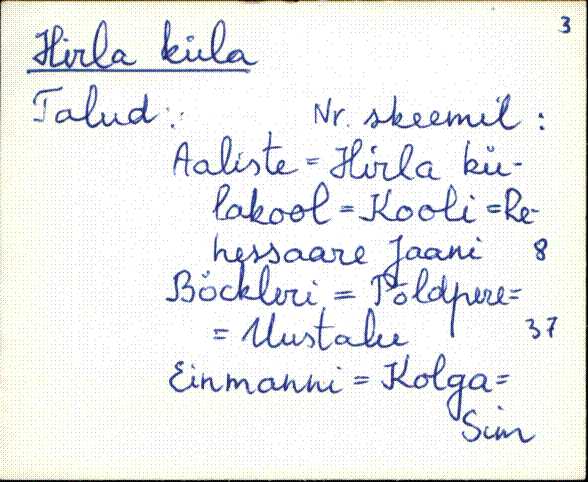 3
Hirla küla
Talud: Nr. skeemil:
Aaliste = Hirla kü-
lakool = Kooli = Re-
hessaare Jaani 8
Böckleri = Põldpere =
= Uustalu 37
Einmanni = Kolga =
Sim